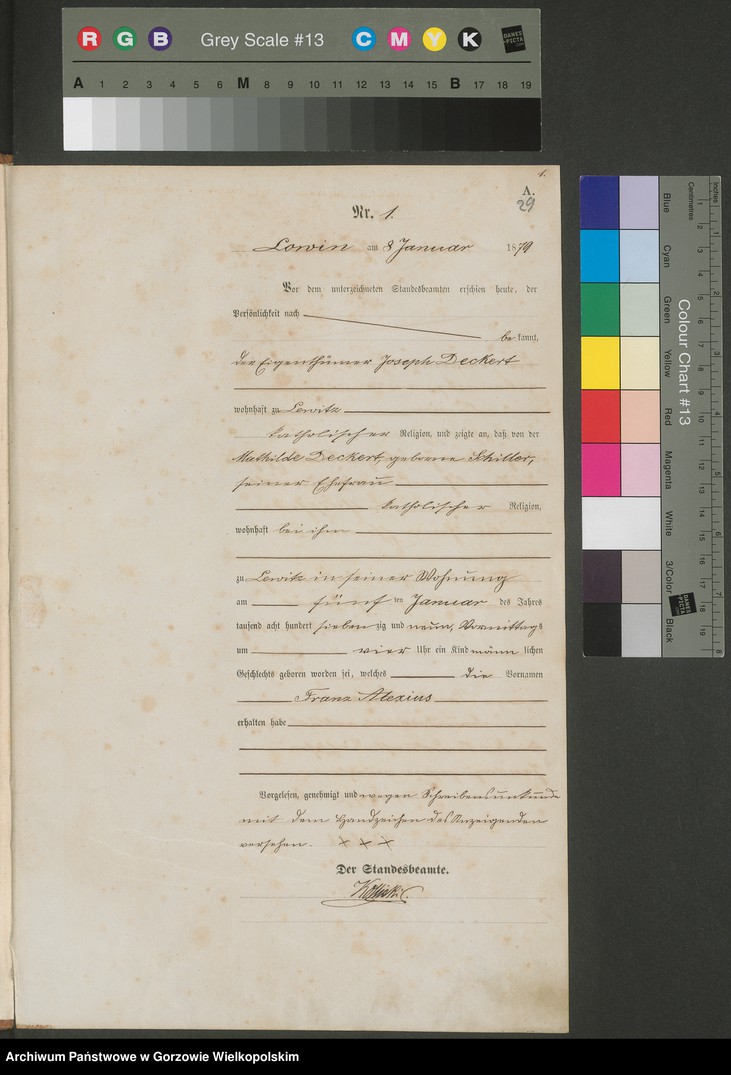 R G B Grey Scale #13 C M Y K DANES-PICTA.COM
A 1 2 3 4 5 6 M 8 9 10 11 12 13 14 15 B 17 18 19
1.
A.
29
Nr. 1.
Lowin am 8 Januar 1879
Vor dem unterzeichneten Standesbeamten erschien heute, der
Persönlichkeit nach
bekannt,
der Eigenthümer Joseph Deckert
wohnhaft zu Lewitz
katholischer Religion, und zeigte an, daß von der
Mathilde Deckert, geborne Schiller,
seiner Ehefrau
katholischer Religion,
wohnhaft bei ihm
zu Lewitz in seiner Wohnung
am fünf ten Januar des Jahres
tausend acht hundert siebenzig und neun, Vormittags
um vier Uhr ein Kind männlichen
Geschlechts geboren worden sei, welches die Vornamen
Franz Alexius
erhalten habe
Vorgelesen, genehmigt und wegen Schreibensunkunde
mit dem Handzeichen des Anzeigenden
versehen. × × ×
Der Standesbeamte.
Colour Chart #13
Blue Cyan Green Yellow Red Magenta White 3/Color Black
Centimetres Inches
DANES-PICTA.COM
Archiwum Państwowe w Gorzowie Wielkopolskim